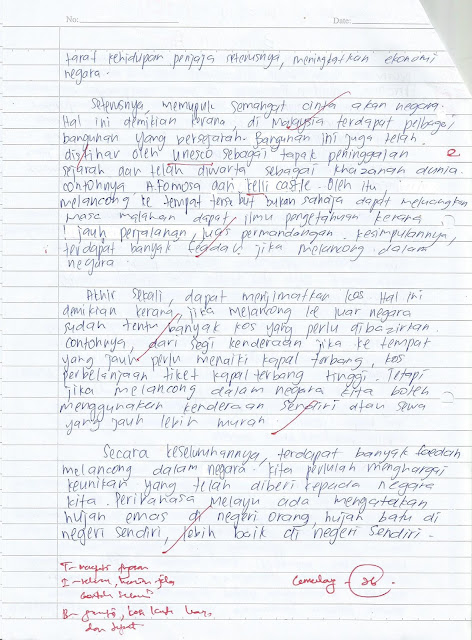 No: Date:
taraf kehidupan penjaja seterusnya, meningkatkan ekonomi
negara.
Seterusnya, memupuk semangat cinta akan negara.
Hal ini demikian kerana di Malaysia terdapat pelbagai
bangunan yang bersejarah. Bangunan ini juga telah
oleh Unesco sebagai tapak peninggalan
sejarah dan telah diwarta sebagai khazanah dunia.
contohnya A.Fomosa dan kelli castle. Oleh itu,
melancong ke tempat tersebut bukan sahaja dapat meluangkan
masa malahan dapat ilmu pengetahuan kerana
jauh perjalanan, luas permandangan. kesimpulannya,
terdapat banyak jika melancong dalam
negara.
Akhir sekali, dapat menjimatkan kos. Hal ini
demikian kerana, jika melancong ke luar negara
sudah tentu banyak kos yang perlu dibazirkan.
contohnya, dari segi kenderaan jika ke tempat
yang jauh perlu menaiki kapal terbang, kos
perbelanjaan tiket kapal terbang tinggi. Tetapi
jika melancong dalam negara kita boleh
menggunakan kenderaan sendiri atau sewa
yang jauh lebih murah.
Secara keseluruhannya, terdapat banyak faedah
melancong dalam negara. kita perlulah menghargai
keunikan yang telah diberi kepada negara
kita. Peribahasa Melayu ada mengatakan
hujan emas di negeri orang, hujan batu di
negeri sendiri, lebih baik di negeri sendiri.
Cemerlang - 26